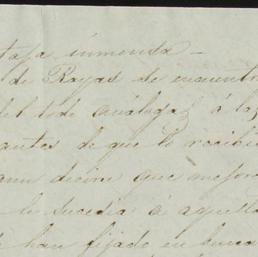 inmensa —
de Rayas de encuentr
del todo análogaz á las
antes de que lo recibi
aun decirse que mejor
le sucedia á aquell
han fijado en